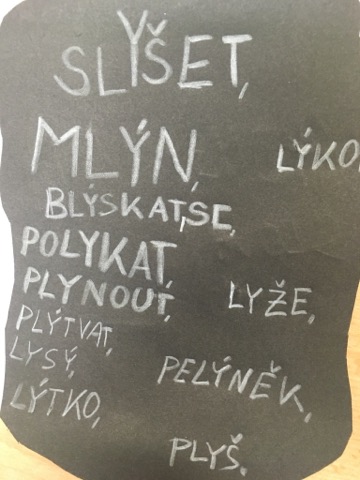 SLYŠET,
MLÝN,
LÝKO
BLÝSKAT,SE,
POLYKAT,
PLYNOUT,
LYŽE,
PLÝTVAT,
LYSÝ,
PELYNĚK,
LÝTKO,
PLYŠ,